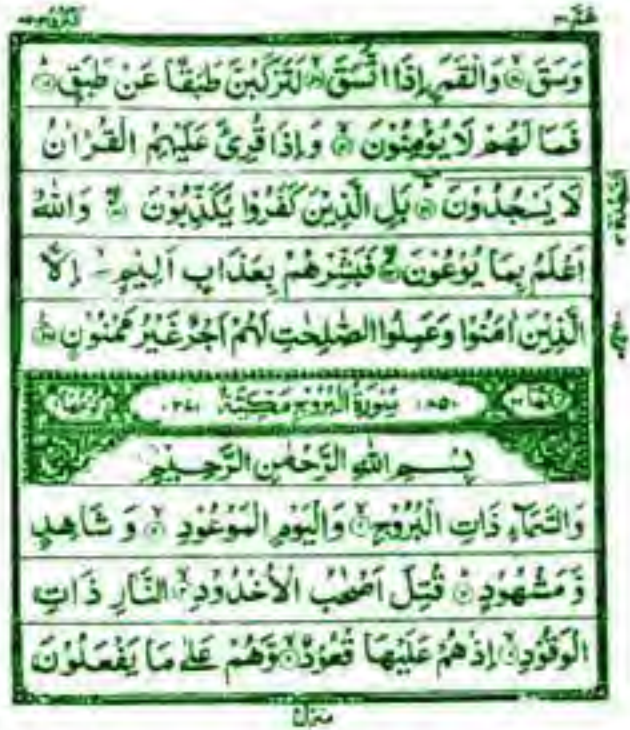 عم ٣٠
وَسَقَ ۙ وَالْقَمَرِ اِذَا اتَّسَقَ ۙ لَتَرْكَبُنَّ طَبَقًا عَنْ طَبَقٍ ؕ
فَمَا لَهُمْ لَا يُؤْمِنُوْنَ ۙ وَاِذَا قُرِئَ عَلَيْهِمُ الْقُرْاٰنُ
لَا يَسْجُدُوْنَ ؕ بَلِ الَّذِيْنَ كَفَرُوْا يُكَذِّبُوْنَ ۖ وَاللّٰهُ
اَعْلَمُ بِمَا يُوْعُوْنَ ۖ فَبَشِّرْهُمْ بِعَذَابٍ اَلِيْمٍ ۙ اِلَّا
الَّذِيْنَ اٰمَنُوْا وَعَمِلُوا الصّٰلِحٰتِ لَهُمْ اَجْرٌ غَيْرُ مَمْنُوْنٍ
سُوْرَةُ الْبُرُوْجِ مَكِّيَّةٌ
بِسْمِ اللّٰهِ الرَّحْمٰنِ الرَّحِيْمِ
وَالسَّمَآءِ ذَاتِ الْبُرُوْجِ ۙ وَالْيَوْمِ الْمَوْعُوْدِ ۙ وَ شَاهِدٍ
وَّمَشْهُوْدٍ ؕ قُتِلَ اَصْحٰبُ الْاُخْدُوْدِ ۙ النَّارِ ذَاتِ
الْوَقُوْدِ ۙ اِذْ هُمْ عَلَيْهَا قُعُوْدٌ ۙ وَّهُمْ عَلٰى مَا يَفْعَلُوْنَ
منزل